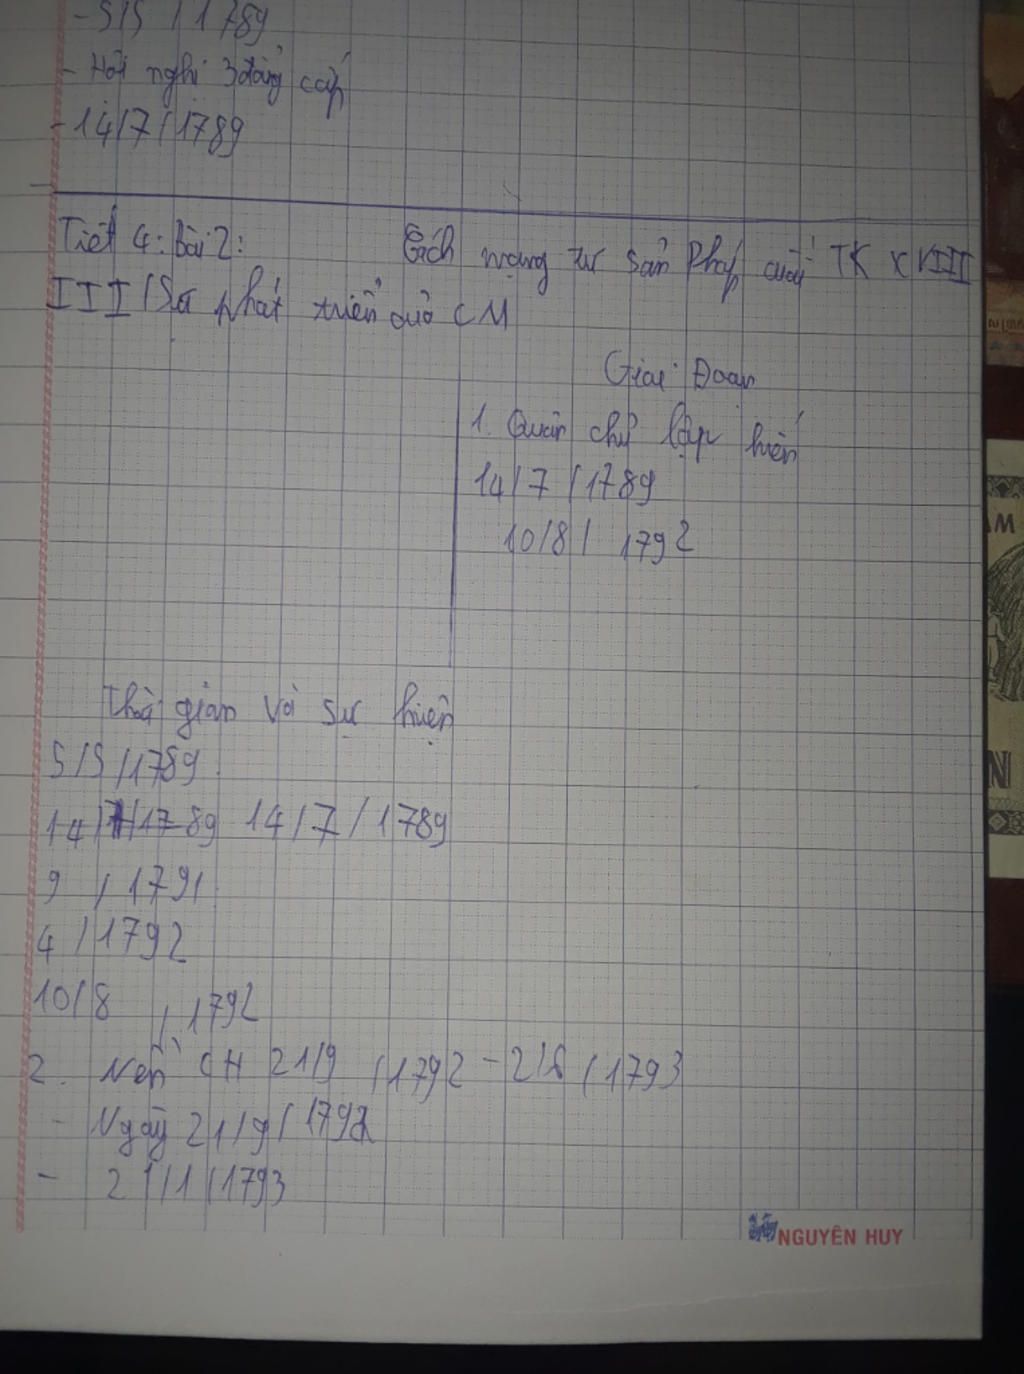 - 5/5 / 1789
- Hội nghị 3 đẳng cấp
- 14/7/1789
Tiết 4: Bài 2: Cách mạng tư sản Pháp cuối TK XVIII
III/ Sự phát triển của CM
Giai Đoạn
1. Quân chủ lập hiến
14/7/1789
10/8/ 1792
Thời gian và sự hiện
5/5/1789
14/7/1789 14/7/1789
9 / 1791
4 / 1792
10/8 / 1792
2. Nền CH 21/9 /1792 - 2/6 /1793
- Ngày 21/9/1792
- 21/1/1793
NGUYÊN HUY